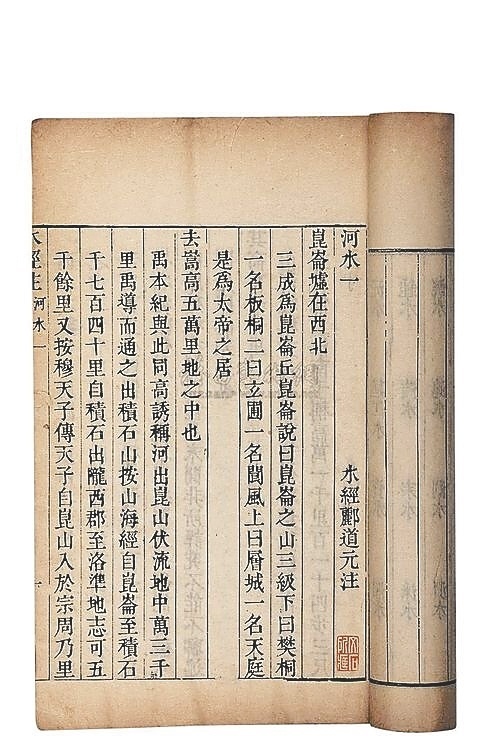 河水一
水經酈道元注
崑崙墟在西北
三成爲崑崙丘崑崙說曰崑崙之山三級下曰樊桐
一名板桐二曰玄圃一名閬風上曰層城一名天庭
是爲太帝之居
去嵩高五萬里地之中也
禹本紀與此同高誘稱河出崑山伏流地中萬三千
里禹導而通之出積石山按山海經自崑崙至積石
千七百四十里自積石出隴西郡至洛準地志可五
千餘里又按穆天子傳天子自崑山入於宗周乃里
水經注 河水一 一